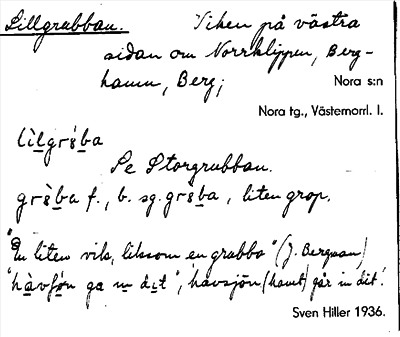 Lillgrubban. Viken på västra
sidan om Norrklippen, Berg-
hamn, Berg;
Nora s:n
Nora tg., Västernorrl. l.
Se Storgrubban.
f., b. sg. , liten grop.
"En liten vik, liksom en grubba" (J. Bergman)
"havsjön (havet) går in dit'.
Sven Hiller 1936.